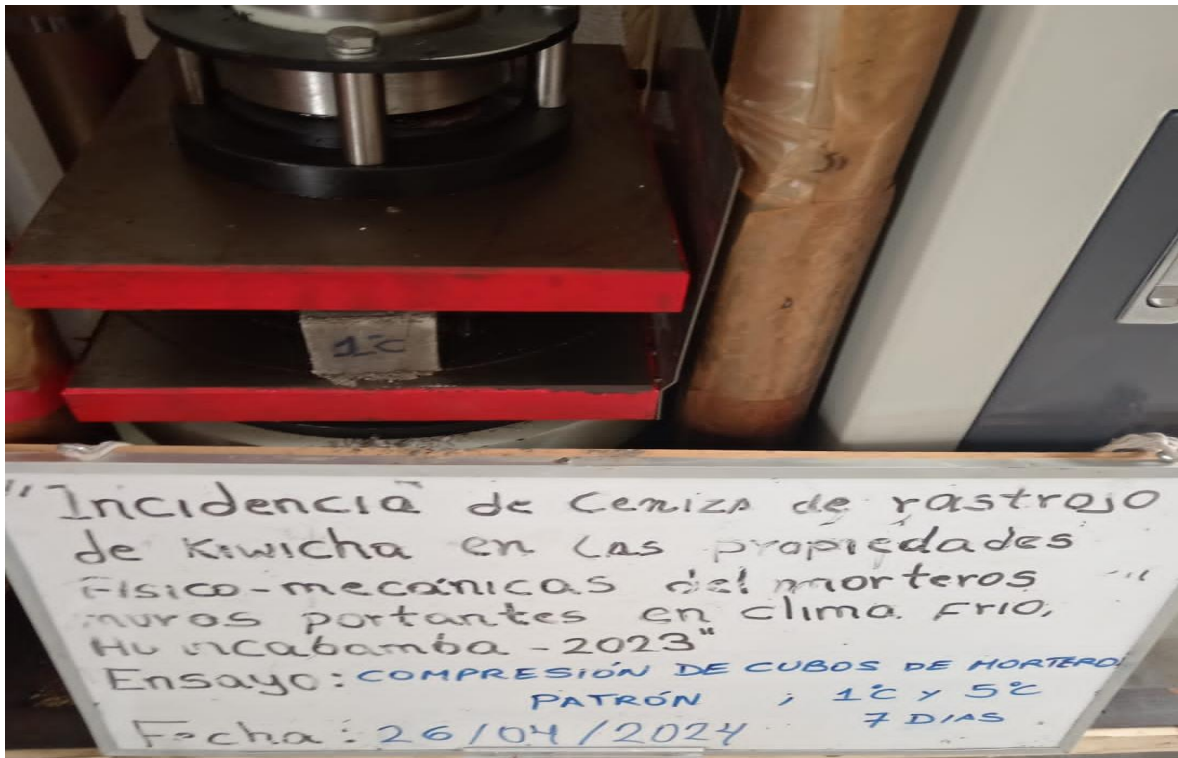 1°C
"Incidencia de Ceniza de rastrojo
de Kiwicha en las propiedades
Físico-mecánicas del morteros
muros portantes en clima Frio,
Huncabamba - 2023"
Ensayo: COMPRESIÓN DE CUBOS DE MORTERO
PATRÓN ; 1°C y 5°C
7 DIAS.
Fecha: 26/04/2024